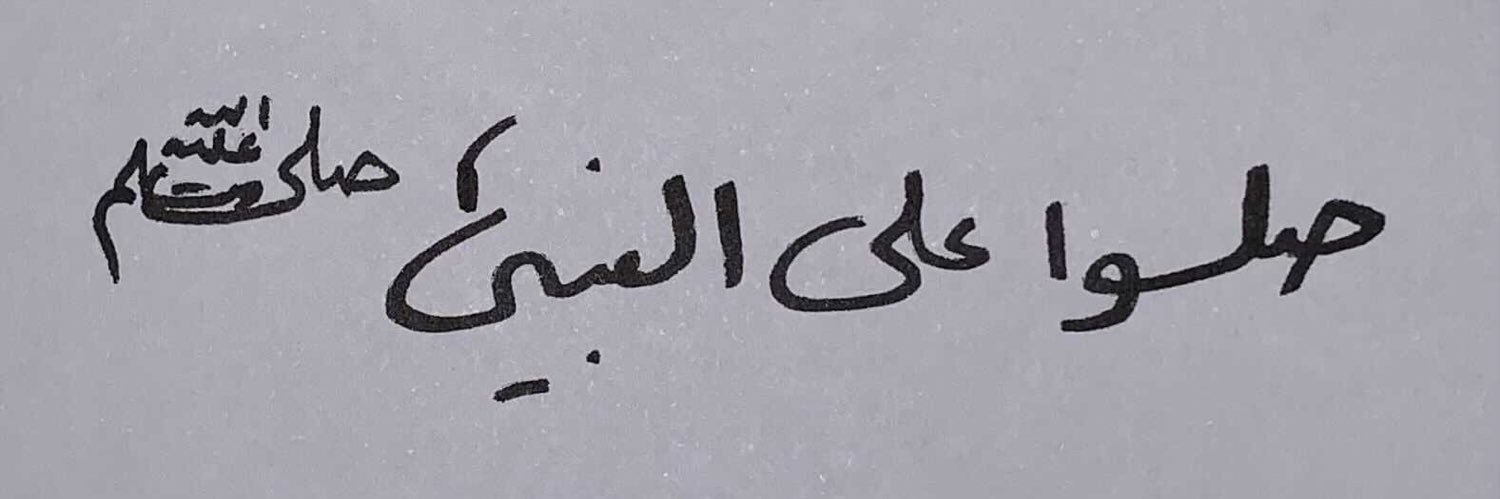 صلوا على النبي صلى الله عليه وسلم